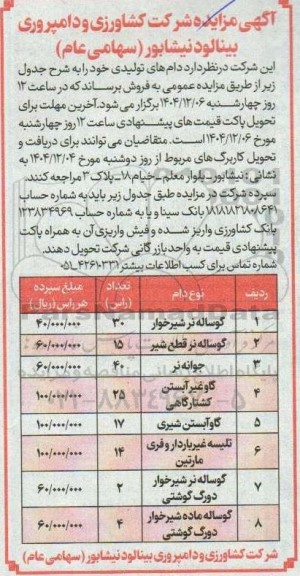 آگهی مزایده شرکت کشاورزی و دامپروری
بینالود نیشابور (سهامی عام)
این شرکت در نظر دارد دام های تولیدی خود را به شرح جدول
زیر از طریق مزایده عمومی به فروش برساند که در ساعت ۱۲
روز چهارشنبه ۱۴۰۴/۱۲/۰۶ برگزار می شود. آخرین مهلت برای
تحویل پاکت قیمت های پیشنهادی ساعت ۱۲ روز چهارشنبه
مورخ ۱۴۰۴/۱۲/۰۶ است. متقاضیان می توانند برای دریافت و
تحویل کاربرگ های مربوط از روز دوشنبه مورخ ۱۴۰۴/۱۲/۰۴ به
نشانی: نیشابور ـ بلوار معلم ـ خیام ۱۸ ـ پلاک ۳ مراجعه کنند.
سپرده شرکت در مزایده طبق جدول زیر باید به شماره حساب
بانک سینا و یا به شماره حساب ۱۲۳۸۳۴۹۶۹
بانک کشاورزی واریز شده و فیش واریزی آن به همراه پاکت
پیشنهادی قیمت به واحد بازرگانی شرکت تحویل دهند.
شماره تماس برای کسب اطلاعات بیشتر ۴۲۶۱۰۳۳۱-۰۵۱
ردیف نوع دام تعداد (راس) مبلغ سپرده هر راس (ریال)
۱ گوساله نر شیرخوار ۳۰ ۴۰/۰۰۰/۰۰۰
۲ گوساله نر قطع شیر ۱۵ ۶۰/۰۰۰/۰۰۰
۳ جوانه نر ۴۰ ۶۰/۰۰۰/۰۰۰
۴ گاو غیر آبستن کشتارگاهی ۲۵ ۱۰۰/۰۰۰/۰۰۰
۵ گاو آبستن شیری ۱۷ ۱۰۰/۰۰۰/۰۰۰
۶ تلیسه غیرباردار و فری مارتین ۱۴ ۱۰۰/۰۰۰/۰۰۰
۷ گوساله نر شیرخوار دورگ گوشتی ۲ ۶۰/۰۰۰/۰۰۰
۸ گوساله ماده شیرخوار دورگ گوشتی ۴ ۶۰/۰۰۰/۰۰۰
شرکت کشاورزی و دامپروری بینالود نیشابور (سهامی عام)